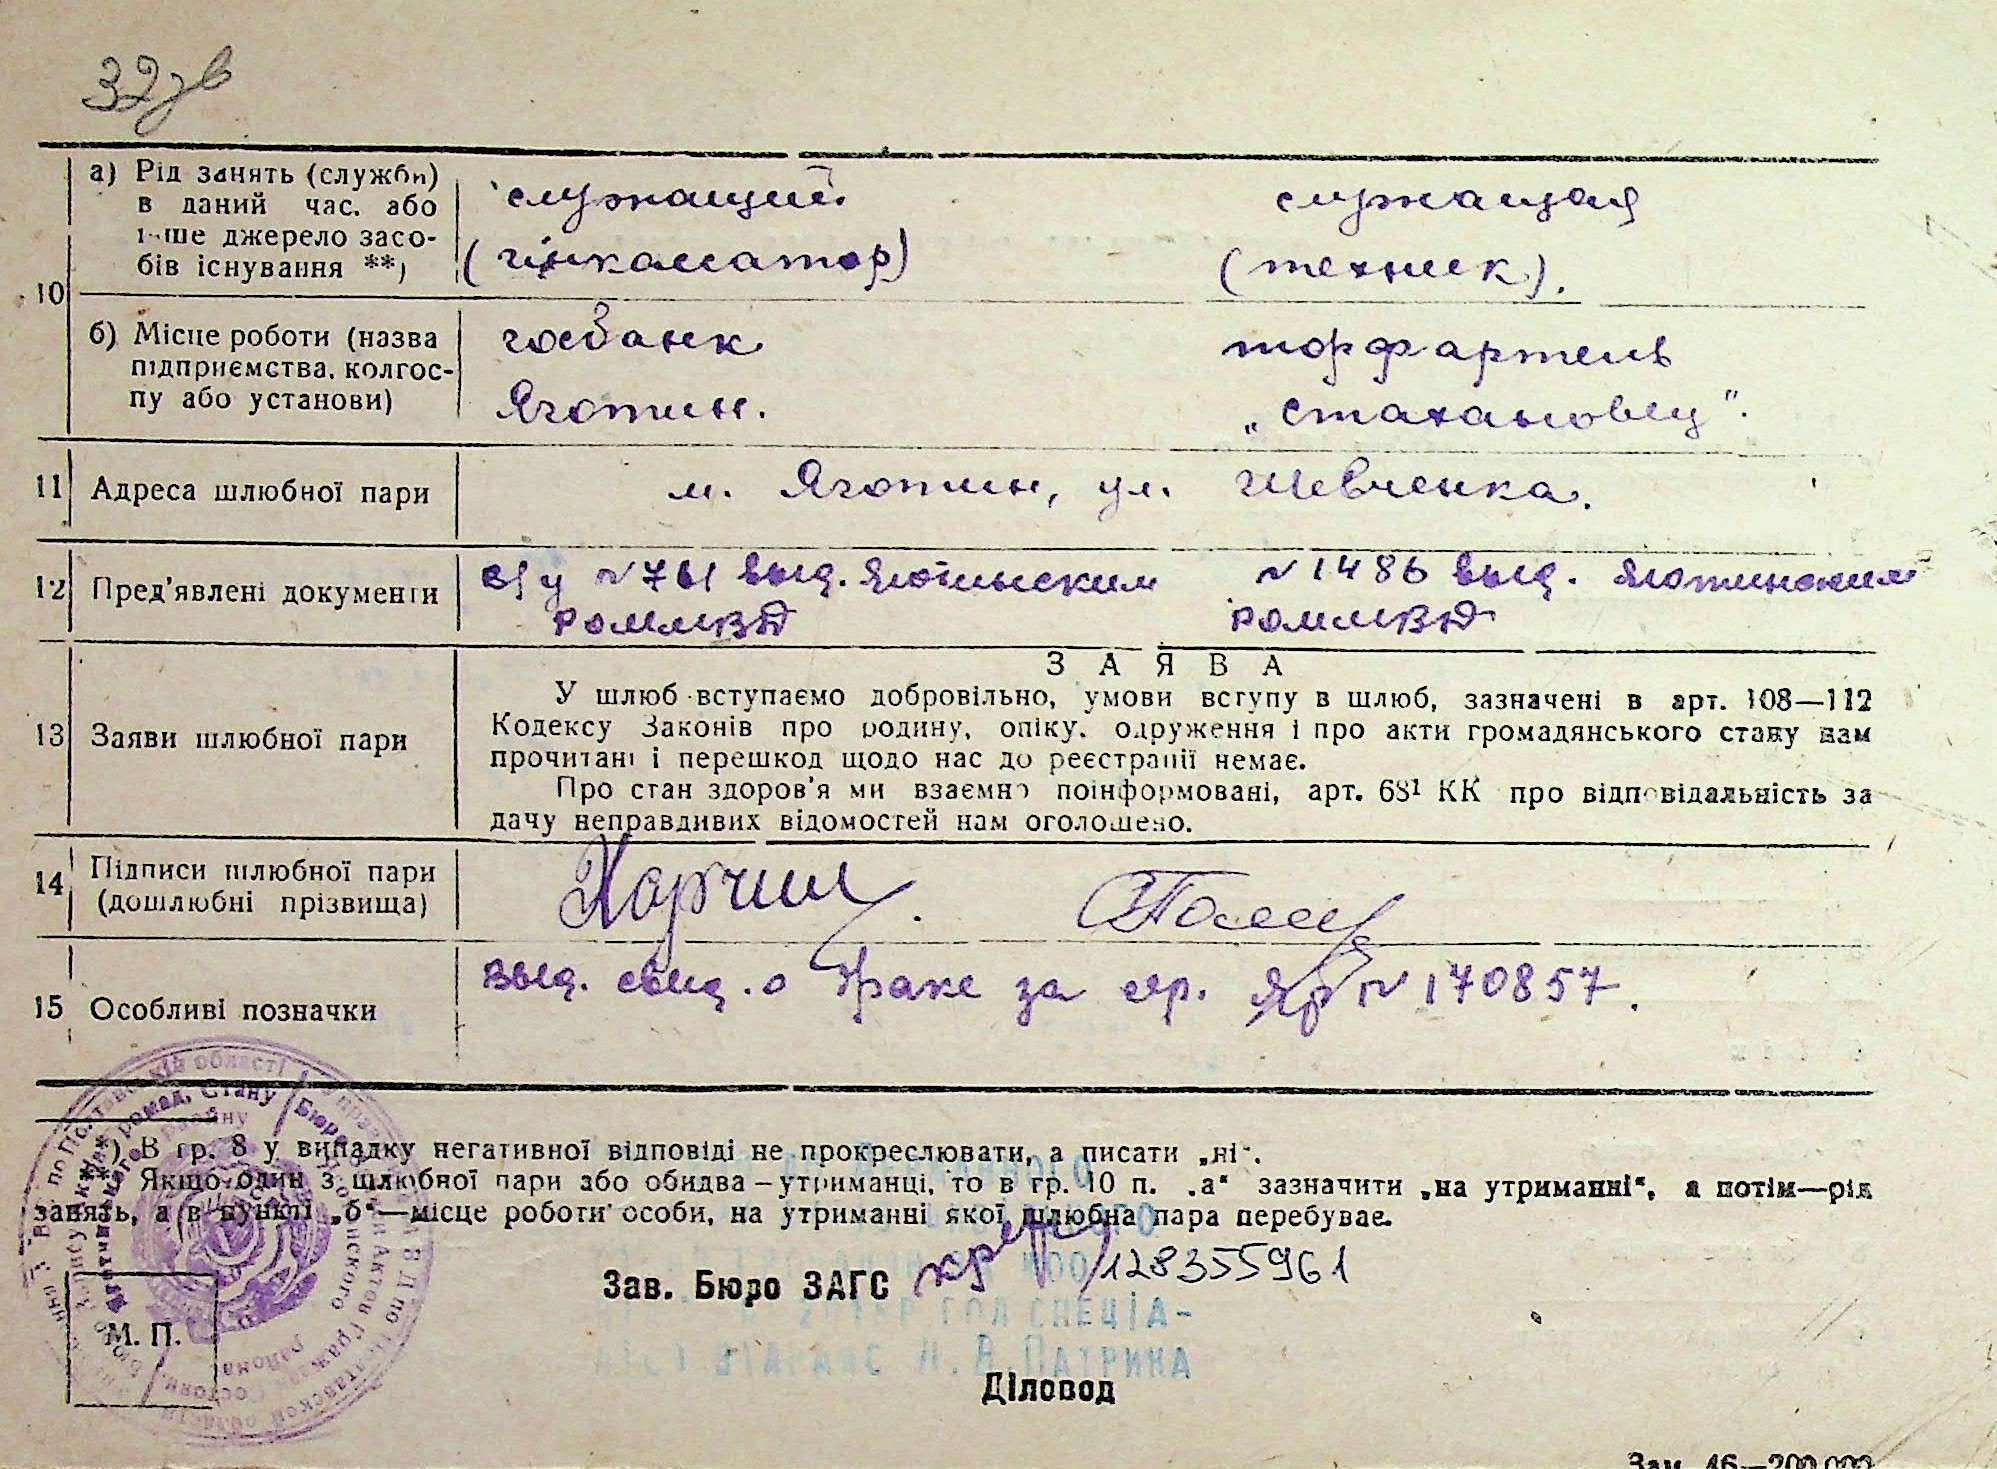 32зв
10
а) Рід занять (служби) в даний час, або інше джерело засобів існування **)
служащий
(інкассатор)
служащая
(техник).
б) Місце роботи (назва підприємства, колгоспу або установи)
госбанк
Яготин.
торфартель
„Стахановец".
11 Адреса шлюбної пари
м. Яготин, ул. Шевченка.
12 Пред'явлені документи
в/у №761 выд. Яготинским
РОММВД
№1486 выд. Яготинским
РОММВД
13 Заяви шлюбної пари
ЗАЯВА
У шлюб вступаємо добровільно, умови вступу в шлюб, зазначені в арт. 108—112
Кодексу Законів про родину, опіку, одруження і про акти громадянського стану нам
прочитані і перешкод щодо нас до реєстрації немає.
Про стан здоров'я ми взаємно поінформовані, арт. 68¹ КК про відповідальність за
дачу неправдивих відомостей нам оголошено.
14 Підписи шлюбної пари
(дошлюбні прізвища)
15 Особливі позначки
выд. свид. о браке за гр. ЯР №170857.
*) В гр. 8 у випадку негативної відповіді не прокреслювати, а писати „ні".
**) Якщо один з шлюбної пари або обидва — утриманці, то в гр. 10 п. „а" зазначити „на утриманні", а потім—рід
занять, а в пункті „б"—місце роботи особи, на утриманні якої шлюбна пара перебуває.
Зав. Бюро ЗАГС
128355961
ГОЛ СПЕЦІА-
ЛІСТ ВІДРАЦС Н.В.ПАТРИКА
М. П.
Діловод
Зам. 46—200.000